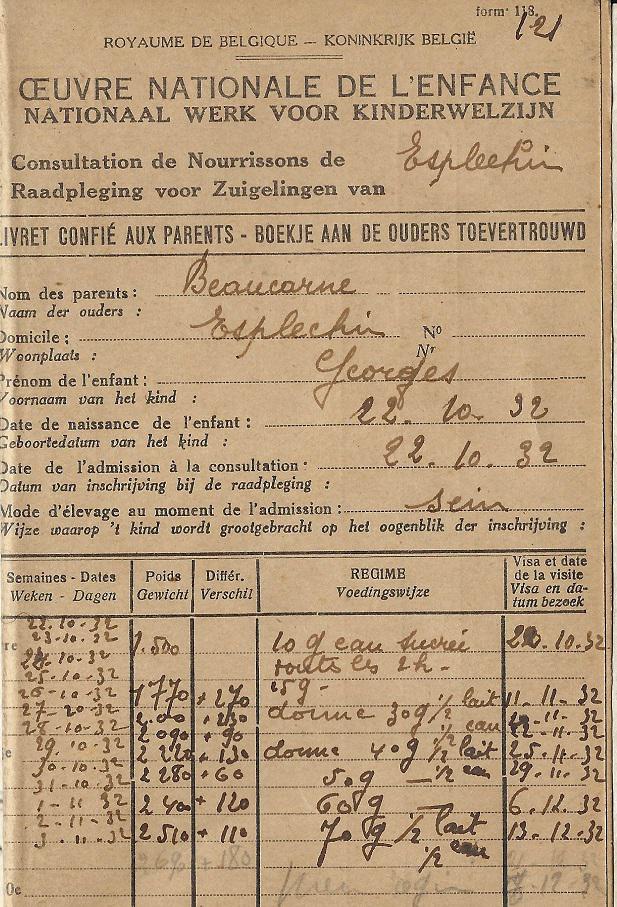 form. 118.
121
ROYAUME DE BELGIQUE — KONINKRIJK BELGIË
ŒUVRE NATIONALE DE L'ENFANCE
NATIONAAL WERK VOOR KINDERWELZIJN
Consultation de Nourrissons de Esplechin
Raadpleging voor Zuigelingen van
LIVRET CONFIÉ AUX PARENTS - BOEKJE AAN DE OUDERS TOEVERTROUWD
Nom des parents : Beaucarne
Naam der ouders :
Domicile : Esplechin No
Woonplaats : Nr
Prénom de l'enfant : Georges
Voornaam van het kind :
Date de naissance de l'enfant : 22. 10. 32
Geboortedatum van het kind :
Date de l'admission à la consultation : 22. 10. 32
Datum van inschrijving bij de raadpleging :
Mode d'élevage au moment de l'admission : sein
Wijze waarop 't kind wordt grootgebracht op het oogenblik der inschrijving :
Semaines - Dates Poids Différ. REGIME Visa et date de la visite
Weken - Dagen Gewicht Verschil Voedingswijze Visa en datum bezoek
22-10-32
23-10-32 1.500 10 g eau sucrée 10.32
24-10-32 toutes les 2h -
25-10-32 15g -
26-10-32 1770 + 270 1/2 lait 11-11-32
27-10-32 2.000 + 230 donne 30g 1/2 eau 11-32
28-10-32 2090 + 90 11-32
29.10-32 2220 + 130 donne 40g 1/2 lait 25-11-32
30-10-32 2280 + 60 50g — 1/2 eau 29.11-32
31-10-32
1-11-32 2400 + 120 60g 6-12-32
2-11-32
3-11-32 2510 + 110 70 g 1/2 lait 13-12-32
1/2 eau
+ 180
0e 12-32